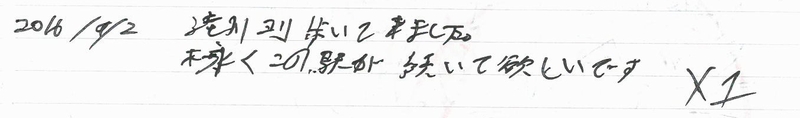 2016/9/2 ヨリ歩いて来ました。
末永くこの駅が続いて欲しいです X1